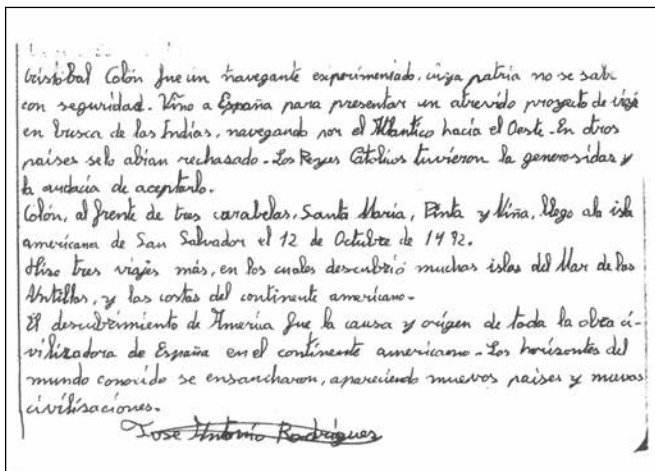 Cristobal Colón fue un navegante experimentado, cuya patria no se sabe
con seguridad. Vino a España para presentar un atrevido proyecto de viaje
en busca de las Indias, navegando por el Atlantico hacía el Oeste. En otros
países selo abian rechasado. Los Reyes Católicos tuvieron la generosidas y
la audacia de aceptarlo.
Colón, al frente de tres carabelas, Santa María, Pinta y Niña, llego ala isla
americana de San Salvador el 12 de Octubre de 1492.
Hiso tres viajes más, en los cuales descubrió muchas islas del Mar de las
Antillas, y las costas del continente americano.
El descubrimiento de America fue la causa y orígen de toda la obra ci-
vilizadora de España en el continente americano. Los horizontes del
mundo conocido se ensancharon, apareciendo nuevos países y nuevas
civilisaciones.
Jose Antonio Rodrigues